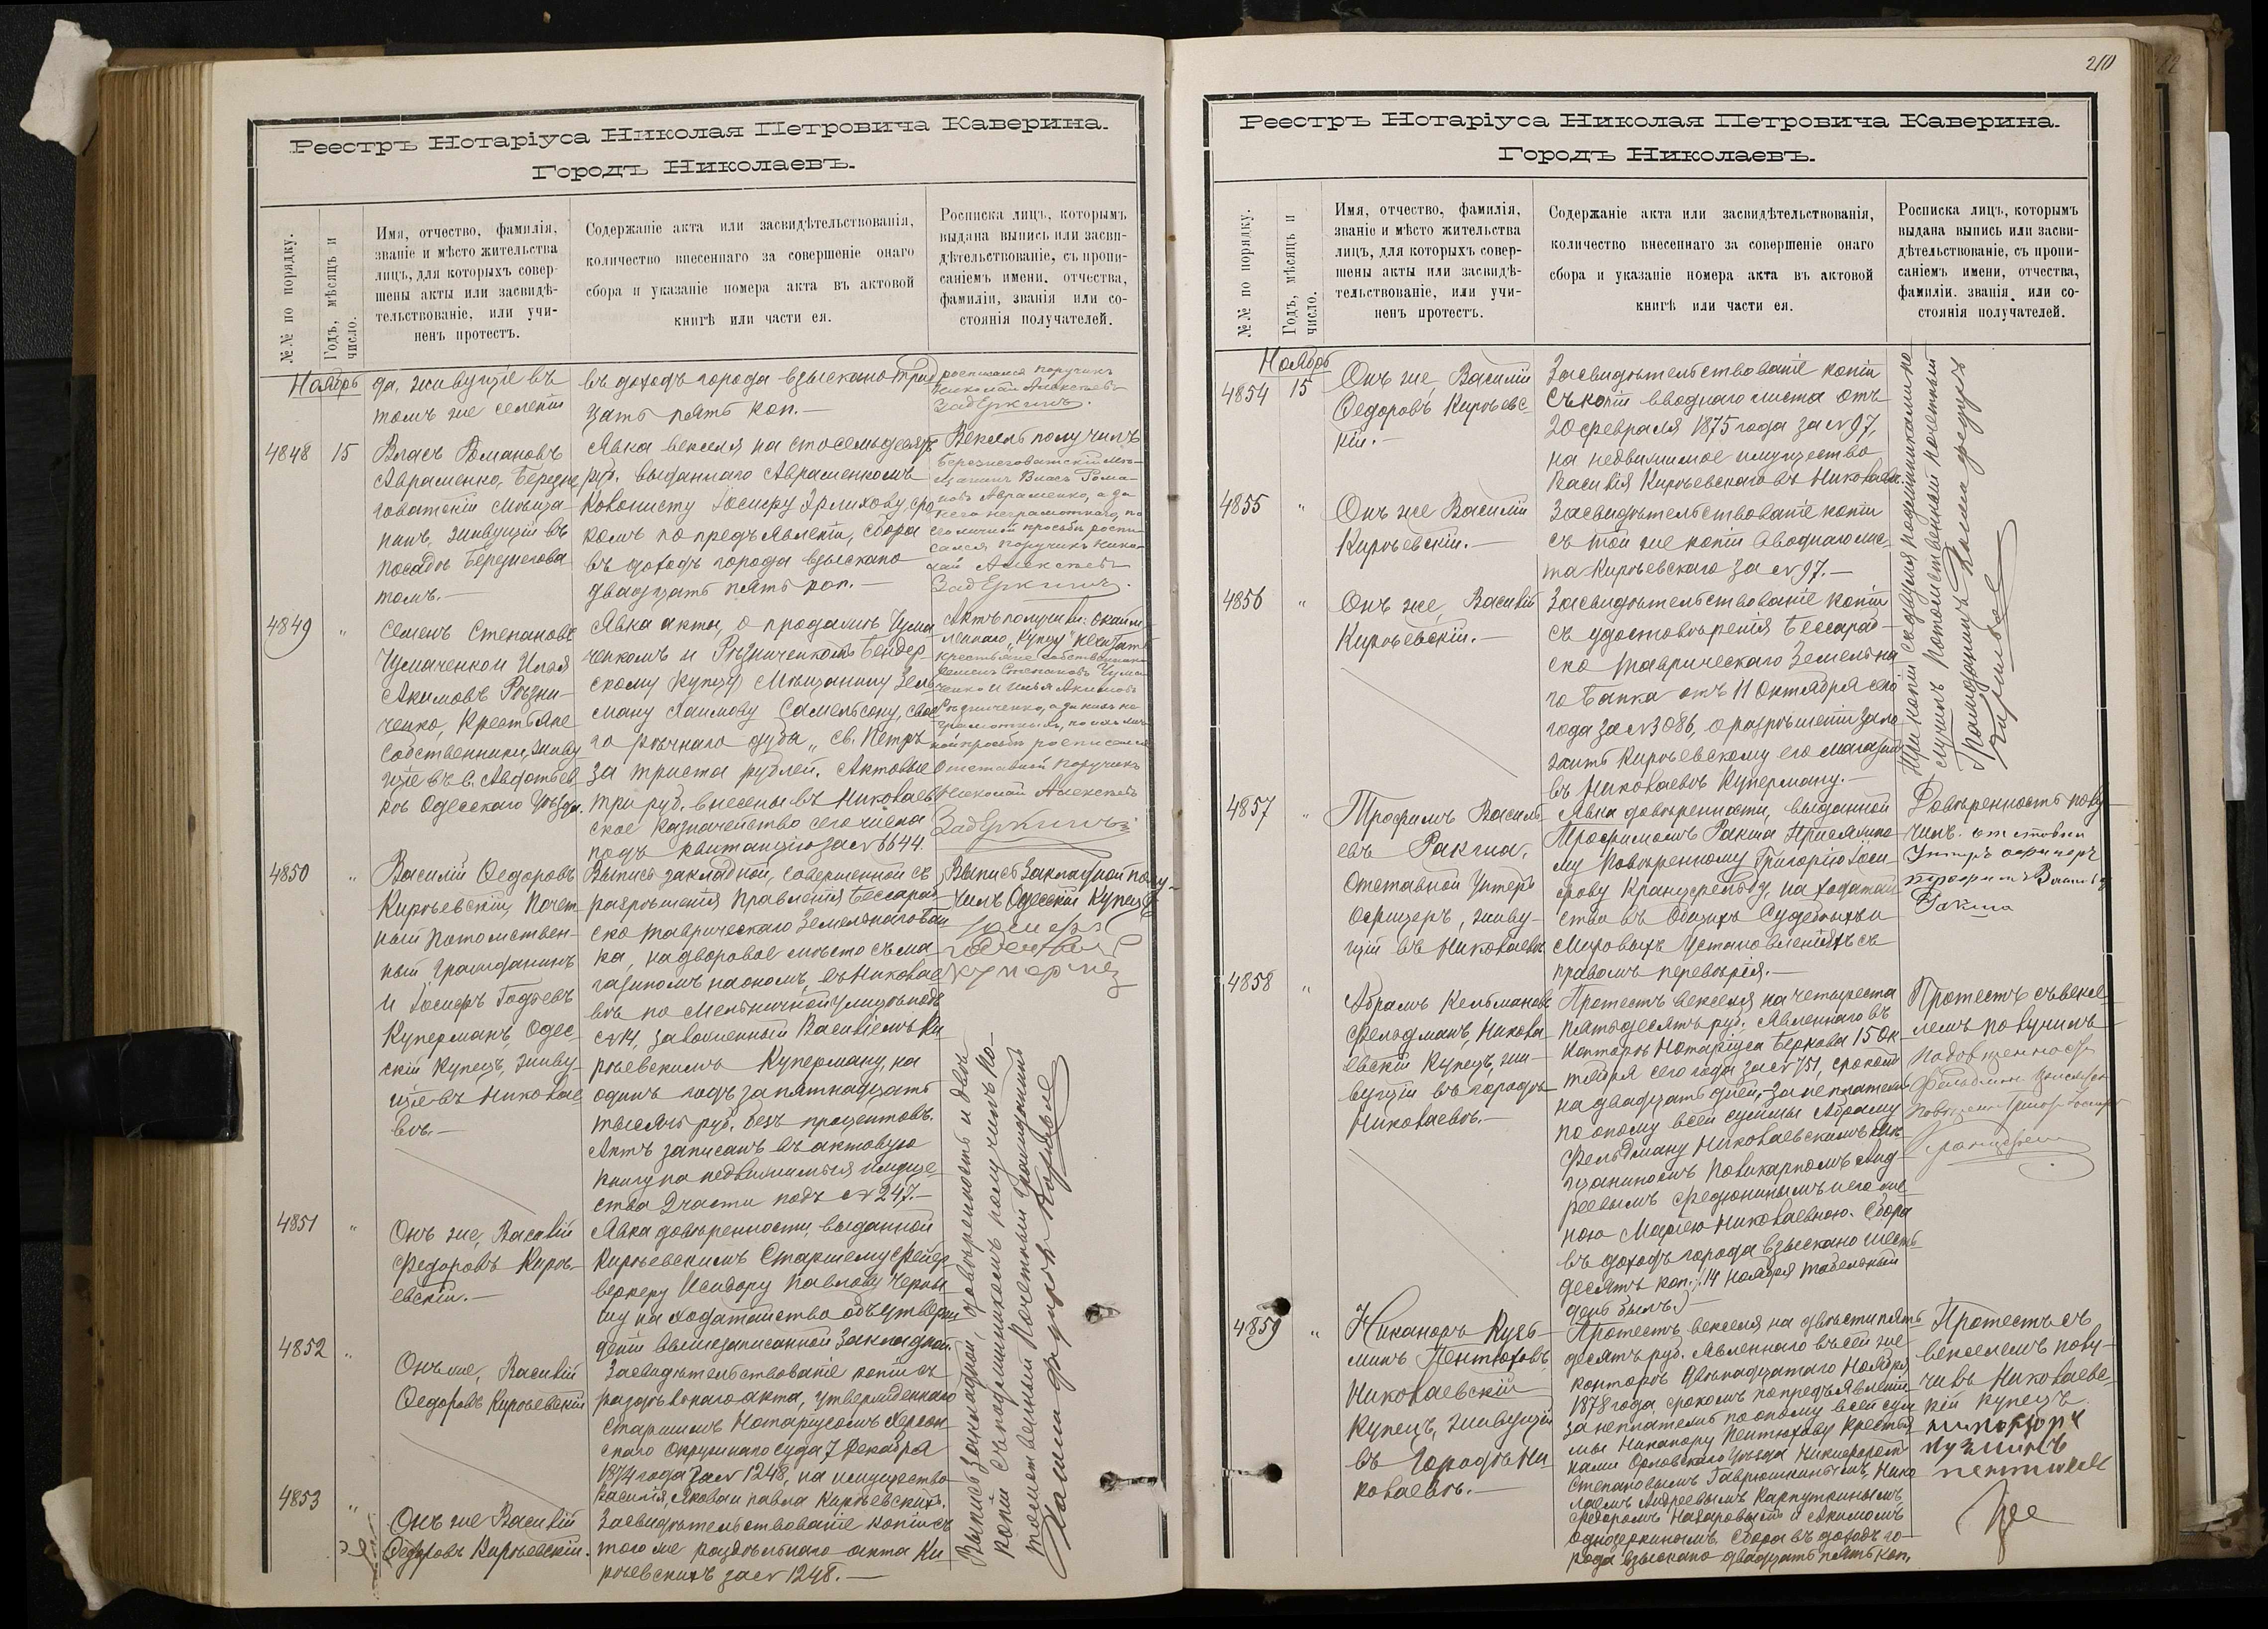 Реестръ Нотаріуса Николая Петровича Каверина.
Городъ Николаевъ.
№№ по порядку.
Годъ, мѣсяцъ и
число.
Имя, отчество, фамилія,
званіе и мѣсто жительства
лицъ, для которыхъ совер-
шены акты или засвидѣ-
тельствованіе, или учи-
ненъ протестъ.
Содержаніе акта или засвидѣтельствованія,
количество внесеннаго за совершеніе онаго
сбора и указаніе номера акта въ актовой
книгѣ или части ея.
Росписка лицъ, которымъ
выдана выпись или засви-
дѣтельствованіе, съ пропи-
саніемъ имени, отчества,
фамиліи, званія или со-
стоянія получателей.
Ноябрь
да, живущіе въ
томъ же селеніи
въ доходъ города взыскано трид
цать пять коп.—
росписался Поручикъ
Николай Алексѣевъ
Задеркинъ.
4848
15
Власъ Романовъ
Авраменко, Березне
говатскій Мѣща-
нинъ, живущій въ
посадѣ Березнегова
томъ.—
Явка векселя на сто семьдесятъ
руб. выданнаго Авраменкомъ
Колонисту Іосифу Эрлихову, сро
комъ по предъявленіи, сбора
въ доходъ города взыскано
двадцать пять коп.—
Вексель получилъ
Березнеговатскій Мѣ-
щанинъ Власъ Рома-
новъ Авраменко, а за
него неграмотнаго, по
его личной просьбѣ роспи
сался Поручикъ Нико-
лай Алексѣевъ
Задеркинъ.
4849
"
Семенъ Степановъ
Чумаченко и Илья
Акимовъ Рѣзни-
ченко, Крестьяне
Собственники, живу
щіе въ с. Авдотьев
кѣ Одесскаго Уѣзда.
Явка акта, о продажѣ Чума
ченкомъ и Рѣзниченкомъ Бендер-
скому Мѣщанину Зель
ману Хаимову Самельсону, свое
го рѣчнаго дуба „св. Петръ
за триста рублей. Актовые
три руб. внесены въ Николаев
ское Казначейство сего числа
подъ квитанцію за № 6644.
Крестьяне Собственники
Семенъ Степановъ Чума-
ченко и Илья Акимовъ
Рѣзниченко, а за нихъ не
грамотныхъ, по ихъ лич
ной просьбѣ росписался
Отставной Поручикъ
Николай Алексѣевъ
Задеркинъ
4850
"
Василій Ѳедоровъ
Кирѣевскій, Почет
ный Потомствен-
ный Гражданинъ
и Іосифъ Годьевъ
Куперманъ, Одес
скій Купецъ, живу
щіе въ Николае
вѣ.—
Выпись закладной, совершенной съ
разрѣшенія Правленія Бессараб
ско Таврическаго Земельнаго Бан
ка, на дворовое мѣсто съ ма-
газиномъ на ономъ, въ Никола-
евѣ по Мельничной Улицѣ подъ
№ 14, заложенный Василіемъ Ки
рѣевскимъ Куперману, на
одинъ годъ за пятнадцать
тысячъ руб. безъ процентовъ.
Актъ записанъ въ актовую
книгу на недвижимыя имуще
ства 2 части подъ № 247.—
Выпись Закладной полу-
чилъ Одесскій Купецъ
4851
"
Онъ же, Василій
Ѳедоровъ Кирѣ-
евскій.—
Явка довѣренности, выданной
Кирѣевскимъ Старшему Фейер
веркеру Исидору Павлову Черны
шу на ходатайство объ утверж
деніи вышезаписанной Закладной.
4852
"
Онъ же, Василій
Ѳедоровъ Кирѣевскій
Засвидѣтельствованіе копіи съ
раздѣльнаго акта, утвержденнаго
Старшимъ Нотаріусомъ Херсон-
скаго Окружнаго Суда 7 Декабря
1874 года за № 1248, на имущество
Василія, Якова и Павла Кирѣевскихъ.
4853
"
Онъ же Василій
Ѳедоровъ Кирѣевскій.
Засвидѣтельствованіе копіи съ
того же раздѣльнаго акта Ки
рѣевскихъ за № 1248.—
Выпись закладной, довѣренность и двѣ
копіи съ подлинникомъ получилъ По-
томственный Почетный Гражданинъ
210
Реестръ Нотаріуса Николая Петровича Каверина.
Городъ Николаевъ.
№№ по порядку.
Годъ, мѣсяцъ и
число.
Имя, отчество, фамилія,
званіе и мѣсто жительства
лицъ, для которыхъ совер-
шены акты или засвидѣ-
тельствованіе, или учи-
ненъ протестъ.
Содержаніе акта или засвидѣтельствованія,
количество внесеннаго за совершеніе онаго
сбора и указаніе номера акта въ актовой
книгѣ или части ея.
Росписка лицъ, которымъ
выдана выпись или засви-
дѣтельствованіе, съ пропи-
саніемъ имени, отчества,
фамиліи, званія или со-
стоянія получателей.
Ноябрь
4854
15
Онъ же, Василій
Ѳедоровъ Кирѣевс-
кій.—
Засвидѣтельствованіе копіи
съ копіи вводнаго листа отъ
20 февраля 1875 года за № 97,
на недвижимое имущество
Василія Кирѣевскаго въ Николаевѣ.
4855
"
Онъ же Василій
Кирѣевскій.—
Засвидѣтельствованіе копіи
съ той же копіи вводнаго лис-
та Кирѣевскаго за № 97.—
4856
"
Онъ же, Василій
Кирѣевскій.—
Засвидѣтельствованіе копіи
съ удостовѣренія Бессараб-
ско Таврическаго Земельна
го Банка отъ 11 Октября сего
года за № 3086, о разрѣшеніи зало
жить Кирѣевскому его магазинъ
въ Николаевѣ Куперману.—
Три копіи съ двумя подлинниками по-
лучилъ Потомственный Почетный
Гражданинъ
4857
"
Трофимъ Василь-
евъ Ракша,
Отставной Унтеръ
Офицеръ, живу-
щій въ Николаевѣ.
Явка довѣренности, выданной
Трофимомъ Ракша Присяжно-
му Повѣренному Григорію Іоси-
фову Кранцфельду, на ходатай
ство въ Общихъ Судебныхъ и
Мировыхъ Установленіяхъ съ
правомъ перевѣрія.—
Довѣренность полу-
чилъ отставной
Унтеръ офицеръ
Трофимъ Васильевъ
Ракша
4858
"
Абрамъ Кельмановъ
Фельдманъ, Никола
евскій Купецъ, жи-
вущій въ городѣ
Николаевѣ.—
Протестъ векселя на четыреста
пятьдесятъ руб. явленнаго въ
Конторѣ Нотаріуса Беркова 15 Ок-
тября сего года за № 751, срокомъ
на двадцать дней, за не платежъ
по оному всей суммы Абраму
Фельдману Николаевскимъ Мѣ
щаниномъ Поликарпомъ Анд-
реевымъ Федюнинымъ и его же
ною Маріею Николаевною. Сбора
въ доходъ города взыскано шесть
десятъ коп. (14 Ноября табельный
день былъ.)—
Протестъ съ вексе-
лемъ получилъ
4859
"
Никаноръ Кузь-
минъ Пентюховъ,
Николаевскій
Купецъ, живущій
въ Городѣ Ни-
колаевѣ.—
Протестъ векселя на двѣсти пять
десятъ руб. явленнаго въ сей же
конторѣ двѣнадцатаго Ноября
1878 года, срокомъ по предъявленіи
за неплатежъ по оному всей сум
мы Никанору Пентюхову Крестья
нами Орловскаго Уѣзда Никифоромъ
Степановымъ Гаврюшкинымъ, Нико
лаемъ Андреевымъ Карпуткинымъ,
Федоромъ Назаровымъ и Акимомъ
Однодеркинымъ. Сбора въ доходъ го-
рода взыскано двадцать пять коп.
Протестъ съ
векселемъ полу-
чилъ Николаевс-
кій купецъ
никаноръ
кузминъ
пентюхов